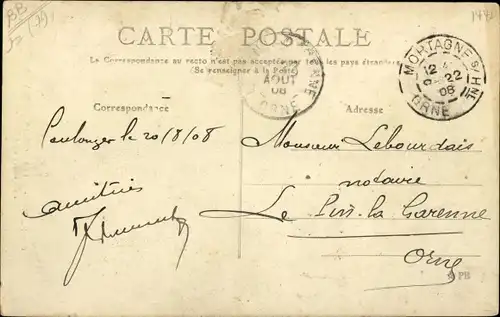 CARTE POSTALE
La Correspondance au recto n'est pas acceptée par tous les pays étrangers
(Se renseigner à la Poste)
MORTAGNE S/HNE
12
22
08
ORNE
AOUT
08
ORNE
Correspondance
Adresse
le 20/8/08
Monsieur Lebourdais
notaire
Le Pin-la Garenne
Orne
amitiés
PB
BB